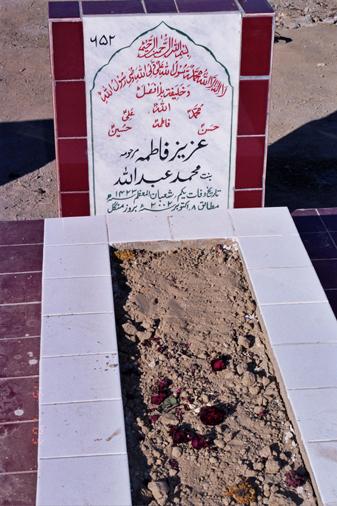 ۶۵۲
بسم اللہ الرحمن الرحیم
لا الہ الا اللہ محمد رسول اللہ علی ولی اللہ وصی رسول اللہ
وخلیفتہ بلا فصل
اللہ محمد علی
فاطمہ حسن حسین
عزیز فاطمہ مرحومہ
بنت
محمد عبد اللہ
تاریخ وفات یکم شعبان المعظم ۱۴۲۳ھ
مطابق ۸ اکتوبر ۲۰۰۲ء بروز منگل